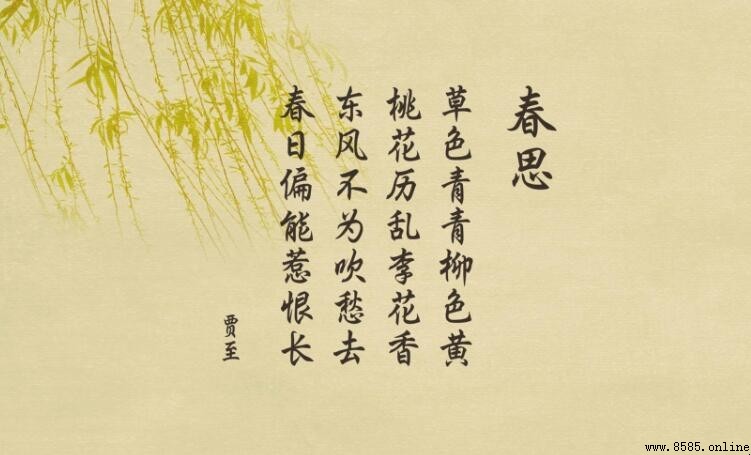 春思
草色青青柳色黄
桃花历乱李花香
东风不为吹愁去
春日偏能惹恨长
贾至
www.8585.online